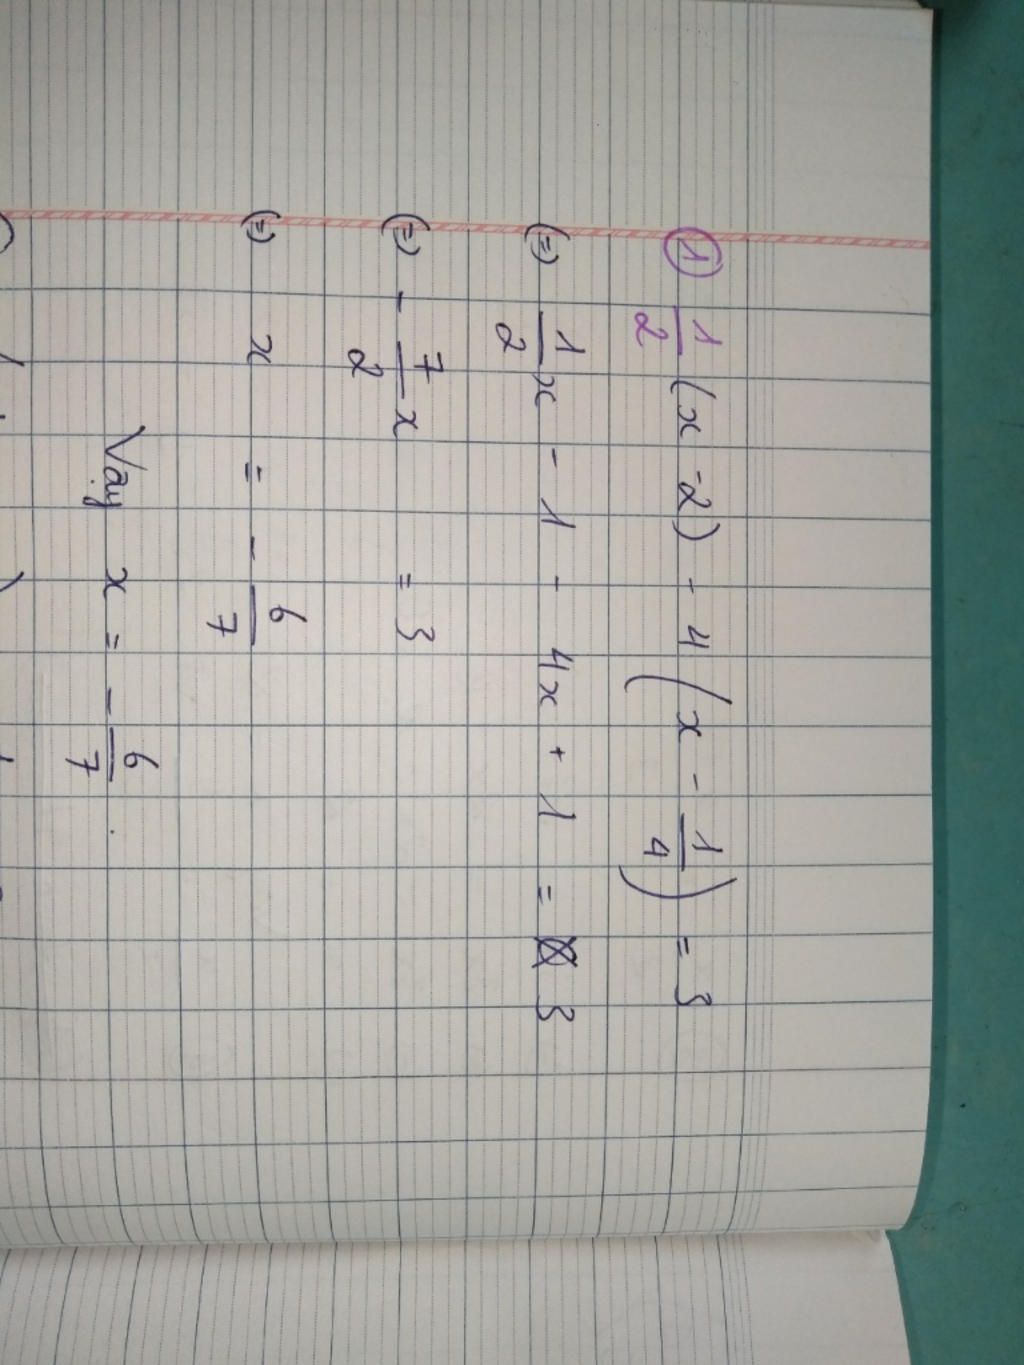 ① 1/2 (x - 2) - 4 (x - 1/4) = 3
(=) 1/2 x - 1 - 4x + 1 = 3
(=) - 7/2 x = 3
(=) x = - 6/7
Vậy x = - 6/7 .